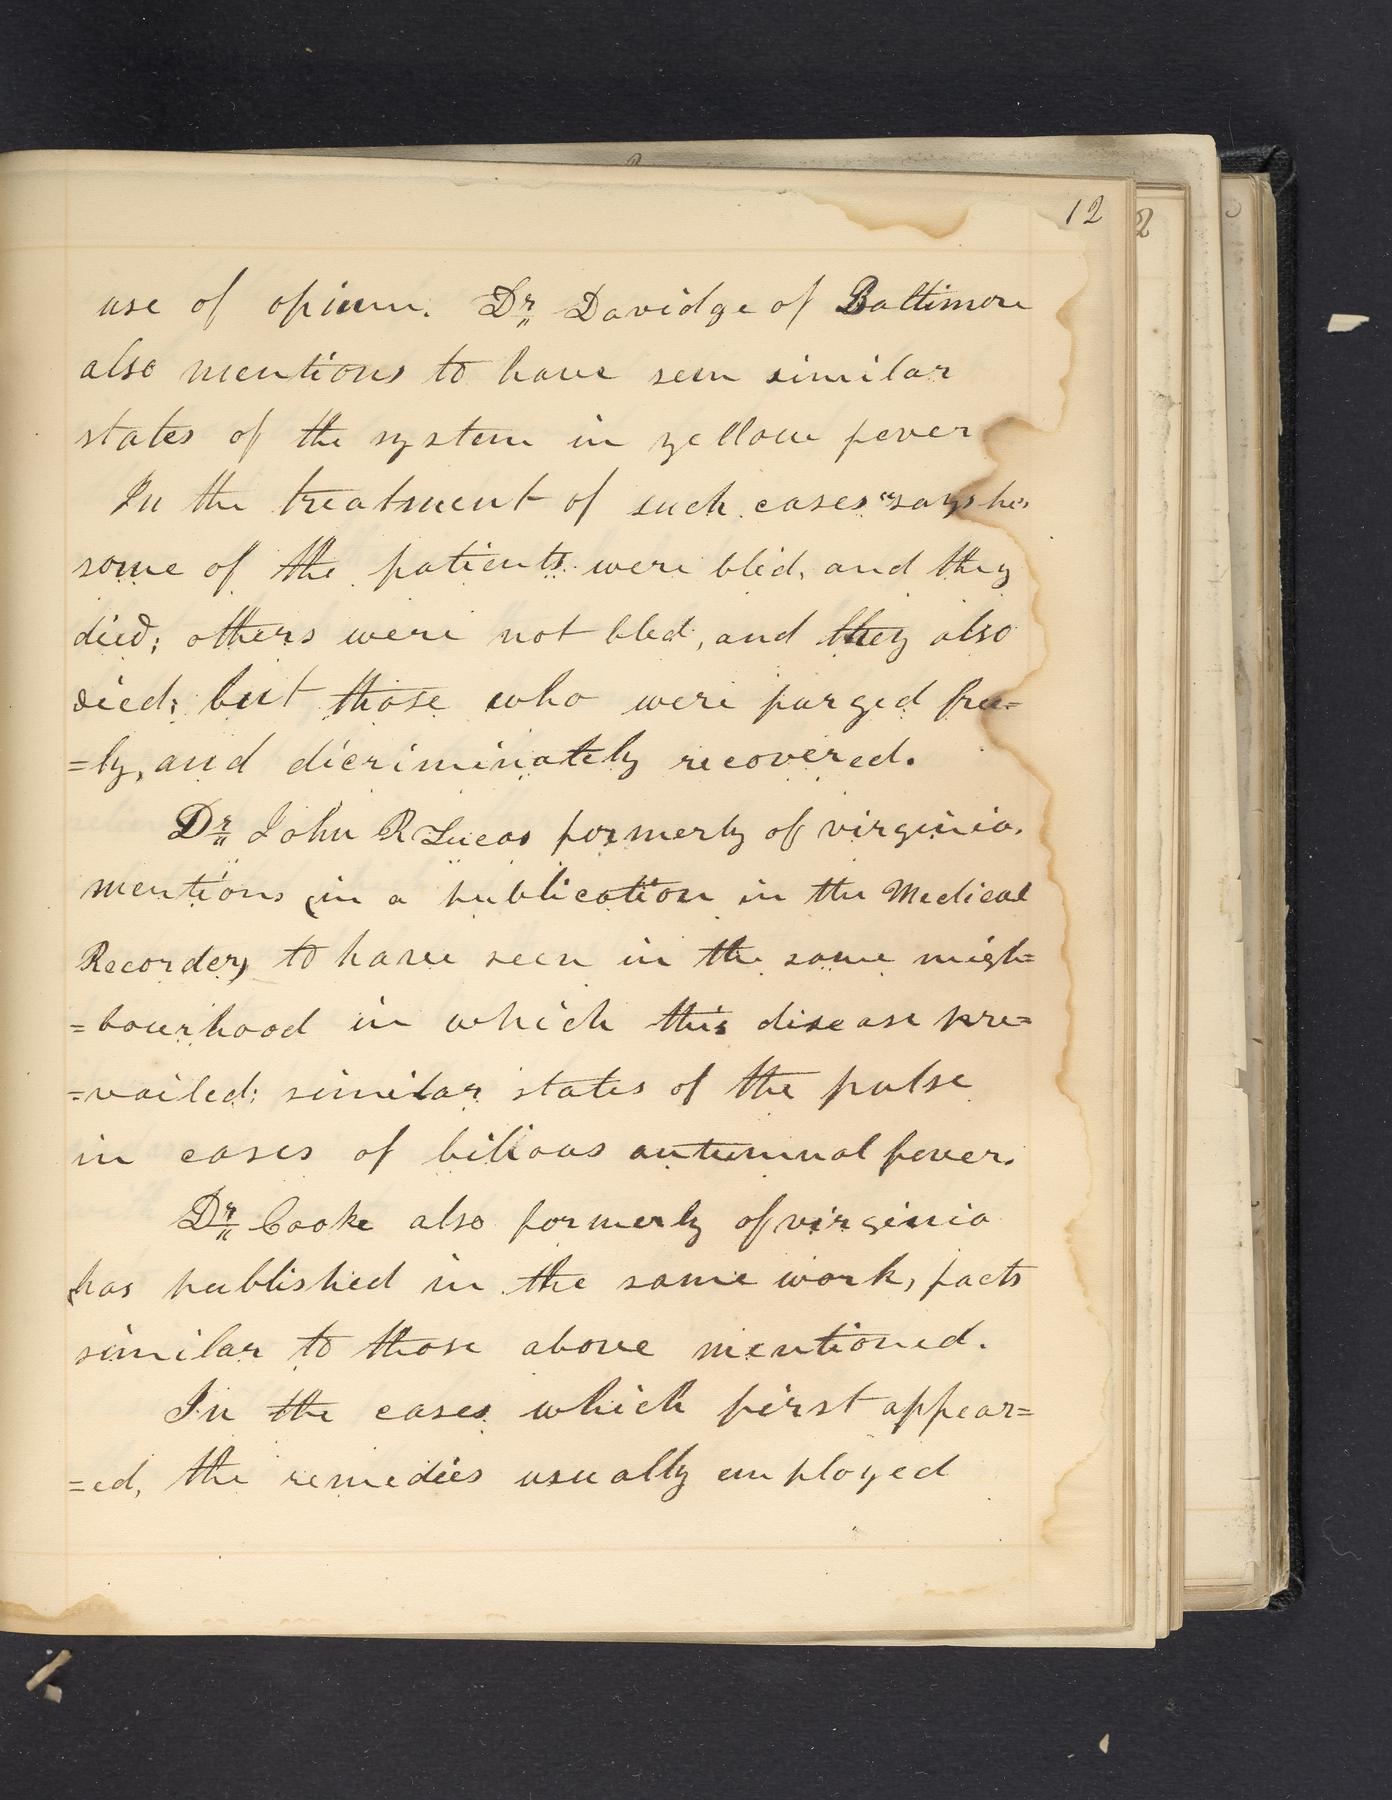 12
use of opium. Dr. Davidge of Baltimore
also mentions to have seen similar
states of the system in yellow fever
In the treatment of such cases "says he"
some of the patients were bled, and they
died; others were not bled, and they also
died; but those who were purged free=
=ly, and dicriminately recovered.
Dr. John R Lucas formerly of virginia.
mentions (in a publication in the Medical
Recorder) to have seen in the same neigh=
=bourhood in which this disease pre=
=vailed; similar states of the pulse
in cases of bilious autumnal fever.
Dr. Cooke also formerly of virginia
has published in the same work, facts
similar to those above mentioned.
In the cases which first appear=
=ed, the remedies usually employed